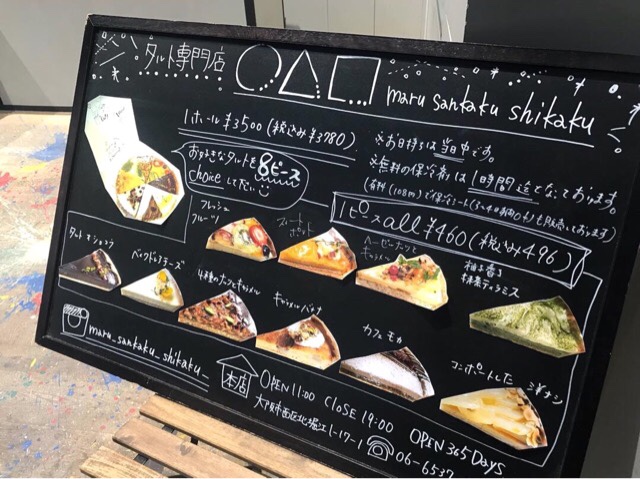 タルト専門店
○△□
maru sankaku shikaku
1ホール¥3500(税込み¥3780)
お好きなタルトを8ピース
choiceして下さい
※お日持ちは当日中です。
※無料の保冷剤は1時間迄でなっております。
有料(108円)で保冷シート
も販売しております)
1ピースall¥460(税込み496)
フレッシュ
フルーツ
スイート
ポテト
ヘーゼルナッツと
キャラメル
柚子香る
抹茶ティラミス
タルトオショコラ
ベイクドチーズ
4種のナッツとキャラメル
キャラメルバナナ
カフェモカ
コンポートした
洋ナシ
maru_sankaku_shikaku_
本店
OPEN 11:00 CLOSE 19:00
OPEN 365 Days
大阪市西区北堀江1-17-1
06-6537